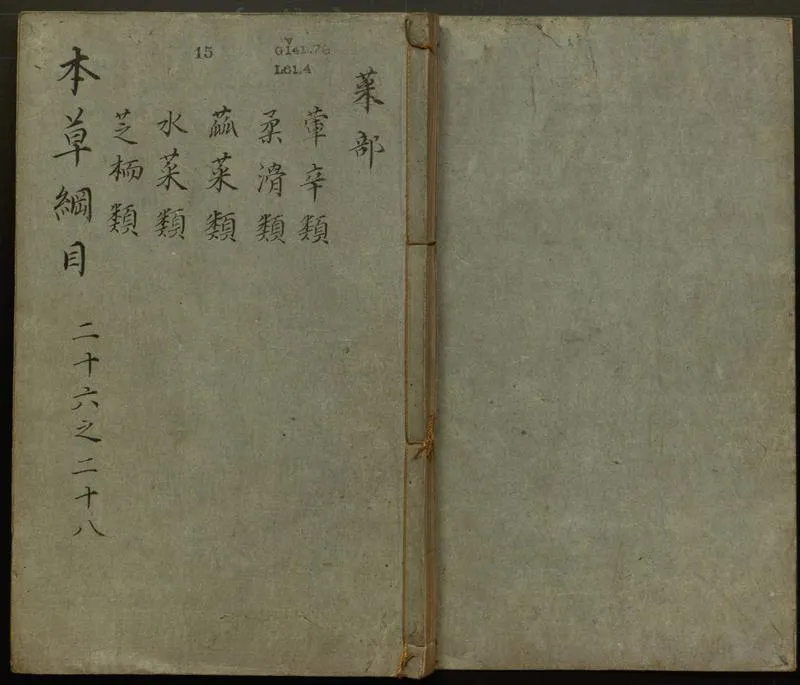 菜部
葷辛類
柔滑類
蓏菜類
水菜類
芝栭類
本草綱目
二十六之二十八
15
G141.76
L61.4